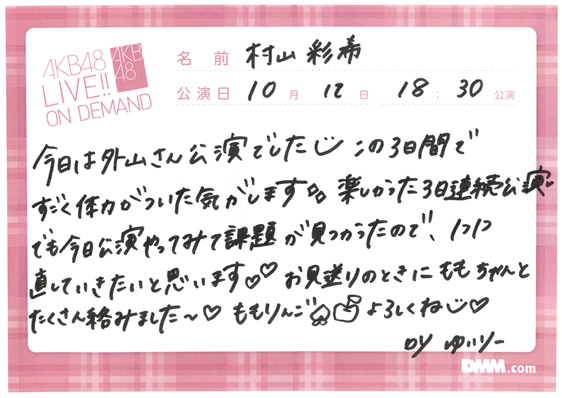 AKB48
LIVE!!
ON DEMAND
AKB
48
名 前 村山 彩希
公演日 10 月 12 日 18 : 30 公演
今日は外山さん公演でした この3日間で
すごく体力がついた気がします 楽しかった3日連続公演
でも今日公演やってみて課題が見つかったので、1つ1つ
直していきたいと思います♡♡ お見送りのときにももちゃんと
たくさん絡みました〜♡ ももりんご よろしくね♡
by ゆいりー
DMM.com